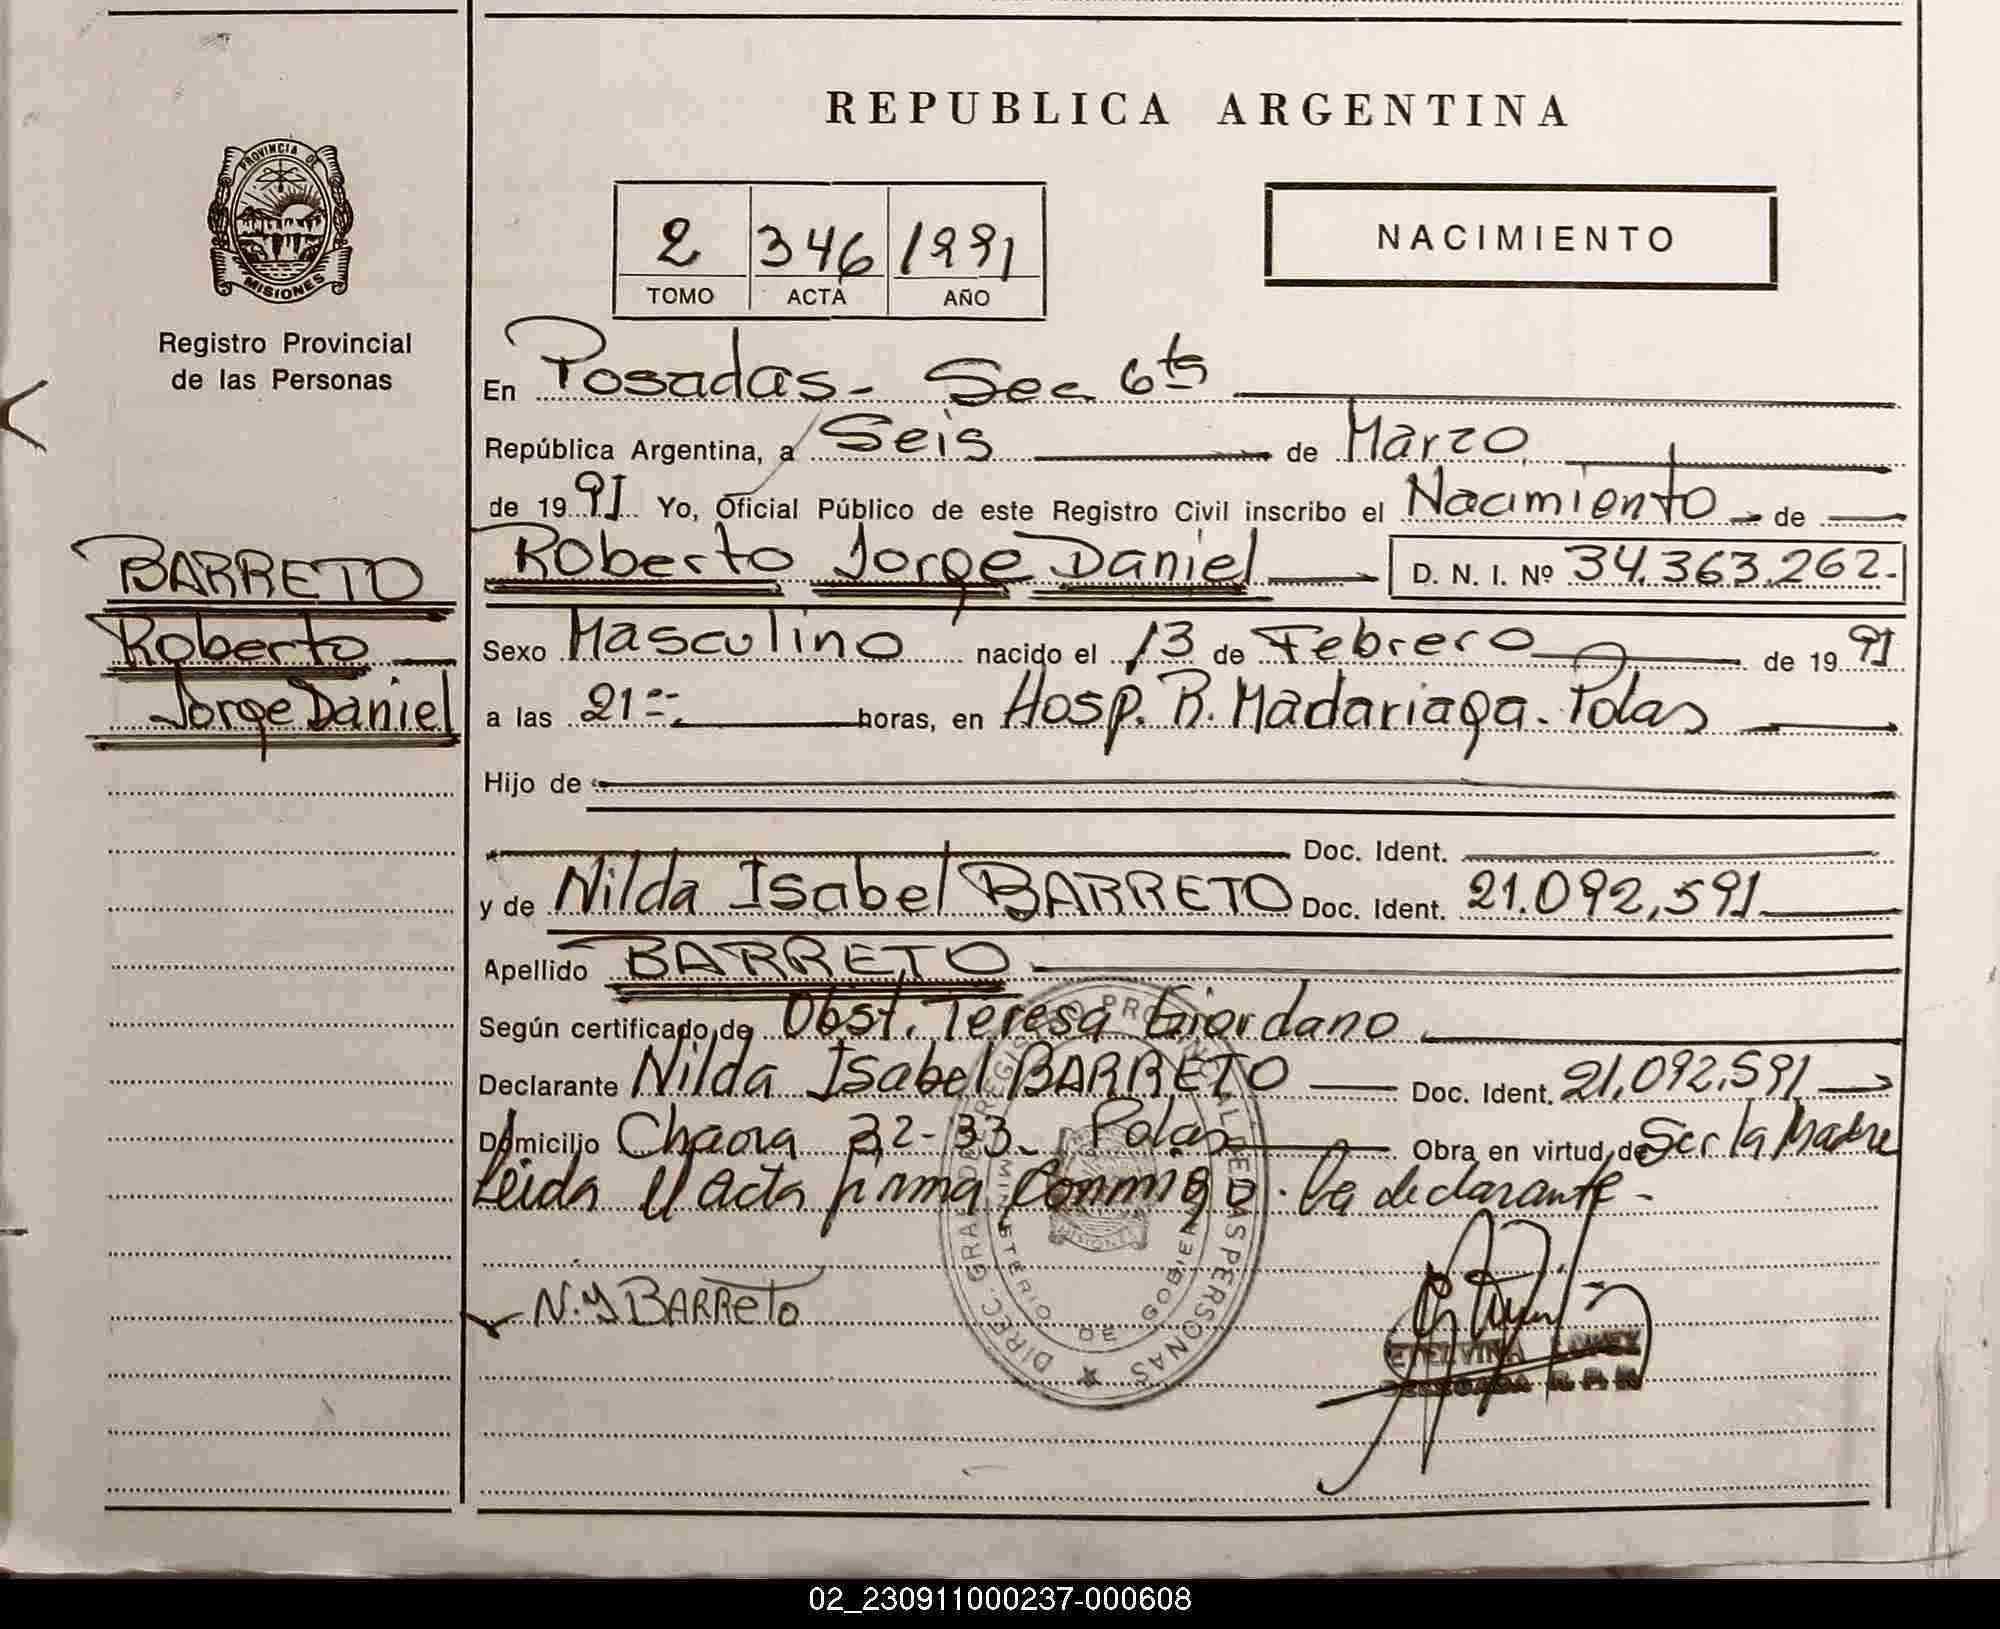 REPUBLICA ARGENTINA
PROVINCIA DE
MISIONES
Registro Provincial
de las Personas
2 346 1991
TOMO ACTA AÑO
NACIMIENTO
En Posadas - Sec 6ta
República Argentina, a Seis de Marzo
de 1991 Yo, Oficial Público de este Registro Civil inscribo el Nacimiento de
BARRETO
Roberto
Jorge Daniel
Roberto Jorge Daniel D. N. I. Nº 34.363.262.-
Sexo Masculino nacido el 13 de Febrero de 1991
a las 21 horas, en Hosp. R. Madariaga. Pdas
Hijo de
Doc. Ident.
y de Nilda Isabel BARRETO Doc. Ident. 21.092.591
Apellido BARRETO
Según certificado de Obst. Teresa Giordano
Declarante Nilda Isabel BARRETO Doc. Ident. 21.092.591
Domicilio 32-33 Pdas Obra en virtud de Ser la Madre
Leida el Acta firma Conmigo. La declarante-
N.Y BARReTo
DIREC. GRAL DE REGISTRO PROVINCIAL DE LAS PERSONAS
MINISTERIO DE GOBIERNO
MISIONES
ETELVINA LOPEZ
02_230911000237-000608